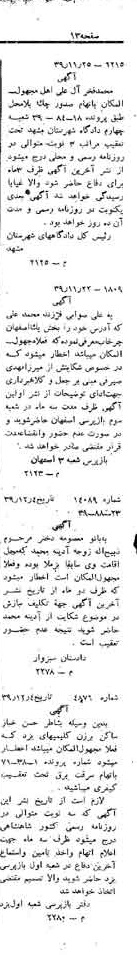 صفحه ۱۳
۲۲۱۵ — ۳۹/۱۱/۲۵
آگهی
محمدقصر آل علی اهل مجهول
المکان باتهام صدور چك بلامحل
طبق پرونده ۱۸-۸۴ — ۳۹ شعبه
چهارم دادگاه شهرستان مشهد تحت
تعقیب مراتب ۳ نوبت متوالی در
روزنامه رسمی و محلی درج میشود
از نشر آخرین آگهی ظرف ۳ماه
برای دفاع حاضر شود والا غیابا
رسیدگی خواهد شد آگهی بعدی
یکنوبت در روزنامه رسمی و مدت
آن ده روز خواهد بود.
رئیس کل دادگاههای شهرستان
مشهد
م — ۲۱۲۵
۱۸۰۹ — ۳۹/۱۱/۲۲
آگهی
به علی سوامی فرزند محمد علی
که آدرس خود را بخش یك اصفهان
چرخاب معرفی نموده که فعلا مجهول
المکان میباشد اخطار میشود که
در خصوص شکایت از میرزامهدی
صیرفی مبنی بر جعل و کلاهبرداری
جهت ادای توضیحات از نشر اولین
آگهی ظرف مدت سه ماه در شعبه
سوم بازپرسی اصفهان حاضر شوید و
در صورت عدم حضور وانقضاء مدت
قرار مقتضی صادر خواهد شد.
بازپرس شعبه ۳ اصفهان
م — ۲۱۲۳
شماره ۱۴۰۸۹ تاریخ ۳۹/۱۲/۴
۳۹—۸۸—۲۳
آگهی
بانو معصومه دختر مرحوم
ذبیح‌اله زوجه آدینه محمد
اقامت وی سابقا بوده وفعلا
مجهول المکان است اخطار میشود
که ظرف دو ماه از تاریخ نشر
آخرین آگهی جهة تکلیف سازش
در موضوع شکایت از آدینه محمد
حاضر شوید نتیجه عدم حضور
تعقیب است
دادستان سبزوار
م — ۲۲۷۸
شماره ۴۸۷۶ تاریخ ۳۹/۱۲/۴
آگهی
بدین وسیله بشاطر حسن خباز
ساکن برزن کلیمیهای یزد که
فعلا مجهول المکان میباشد اخطار
میشود شماره پرونده ۱—۳۸—۷۱
باتهام سرقت برق تحت تعقیب
کیفری میباشید
لازم است از تاریخ نشر این
آگهی که سه نوبت متوالی در
روزنامه رسمی کشور شاهنشاهی
درج میشود ظرف سه ماه جهت
اعلام اتهام واخذ تامین واستماع
آخرین دفاع در شعبه اول بازپرسی
یزد حاضر شوید والا تصمیم مقتضی
اتخاذ خواهد شد
دفتر بازپرسی شعبه اول یزد
م — ۲۲۸۰